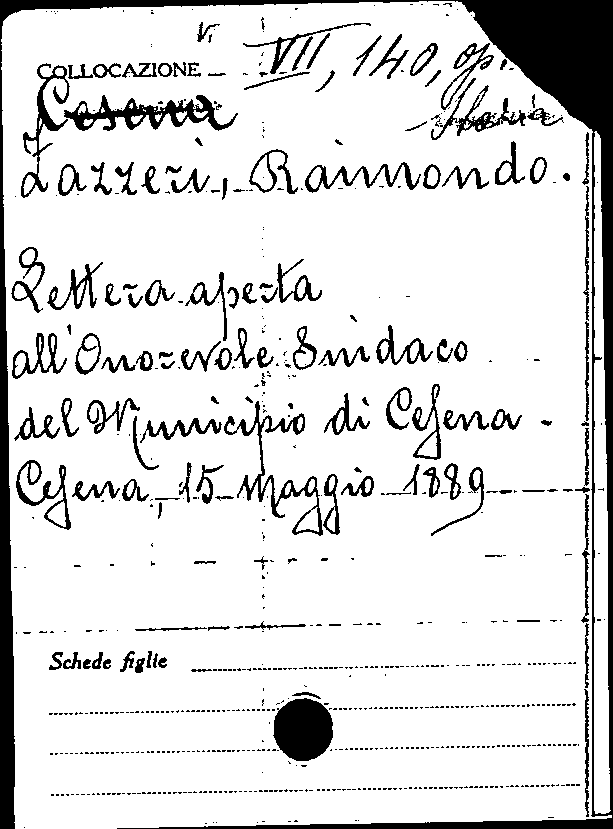 V.
COLLOCAZIONE VII, 140, op.
Cesena
Zazzeri, Raimondo.
Lettera aperta
all'Onorevole Sindaco
del Municipio di Cesena -
Cesena, 15 Maggio 1889
Schede figlie